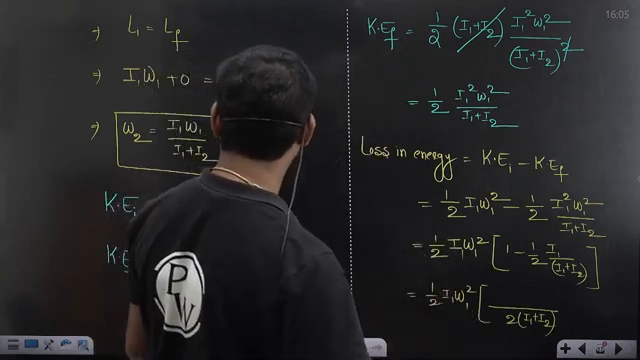 16:05
⇒ L₁ = L_f
⇒ I₁W₁ + 0 =
⇒ W₂ = I₁W₁ / (I₁+I₂)
K.E_i
K.E
PW
K.E_f = 1/2 (I₁+I₂) I₁²W₁² / (I₁+I₂)²
= 1/2 I₁²W₁² / (I₁+I₂)
Loss in energy = K.E_i − K.E_f
= 1/2 I₁W₁² − 1/2 I₁²W₁² / (I₁+I₂)
= 1/2 I₁W₁² [1 − 1/2 I₁ / (I₁+I₂)]
= 1/2 I₁W₁² [ / 2(I₁+I₂)